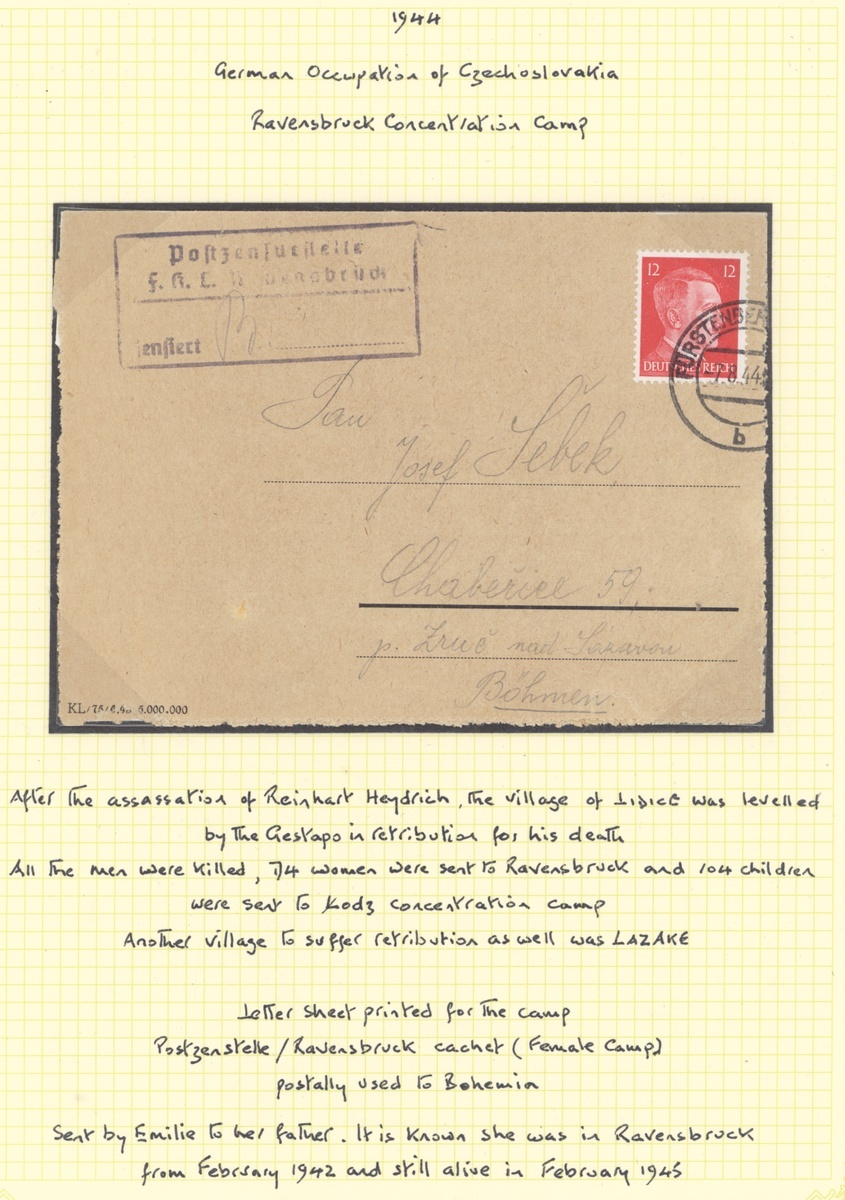 1944
German Occupation of Czechoslovakia
Ravensbruck Concentration Camp
Postzensurstelle
F. K. L. Ravensbrück
zensiert
12 12
DEUTSCHES REICH
FÜRSTENBER
5.8.44
b
Pan
Josef Šebek
Chabeřice 59.
p. Zruč nad Sázavou
Böhmen.
KL/75/6.43 5.000.000
After the assassation of Reinhart Heydrich, the village of LIDICE was levelled
by the Gestapo in retribution for his death
All the men were killed, 174 women were sent to Ravensbruck and 104 children
were sent to Lodz concentration camp
Another village to suffer retribution as well was LAZAKE
Letter sheet printed for the camp
Postzenstelle / Ravensbruck cachet (Female Camp)
postally used to Bohemia
Sent by Emilie to her father. It is known she was in Ravensbruck
from February 1942 and still alive in February 1945